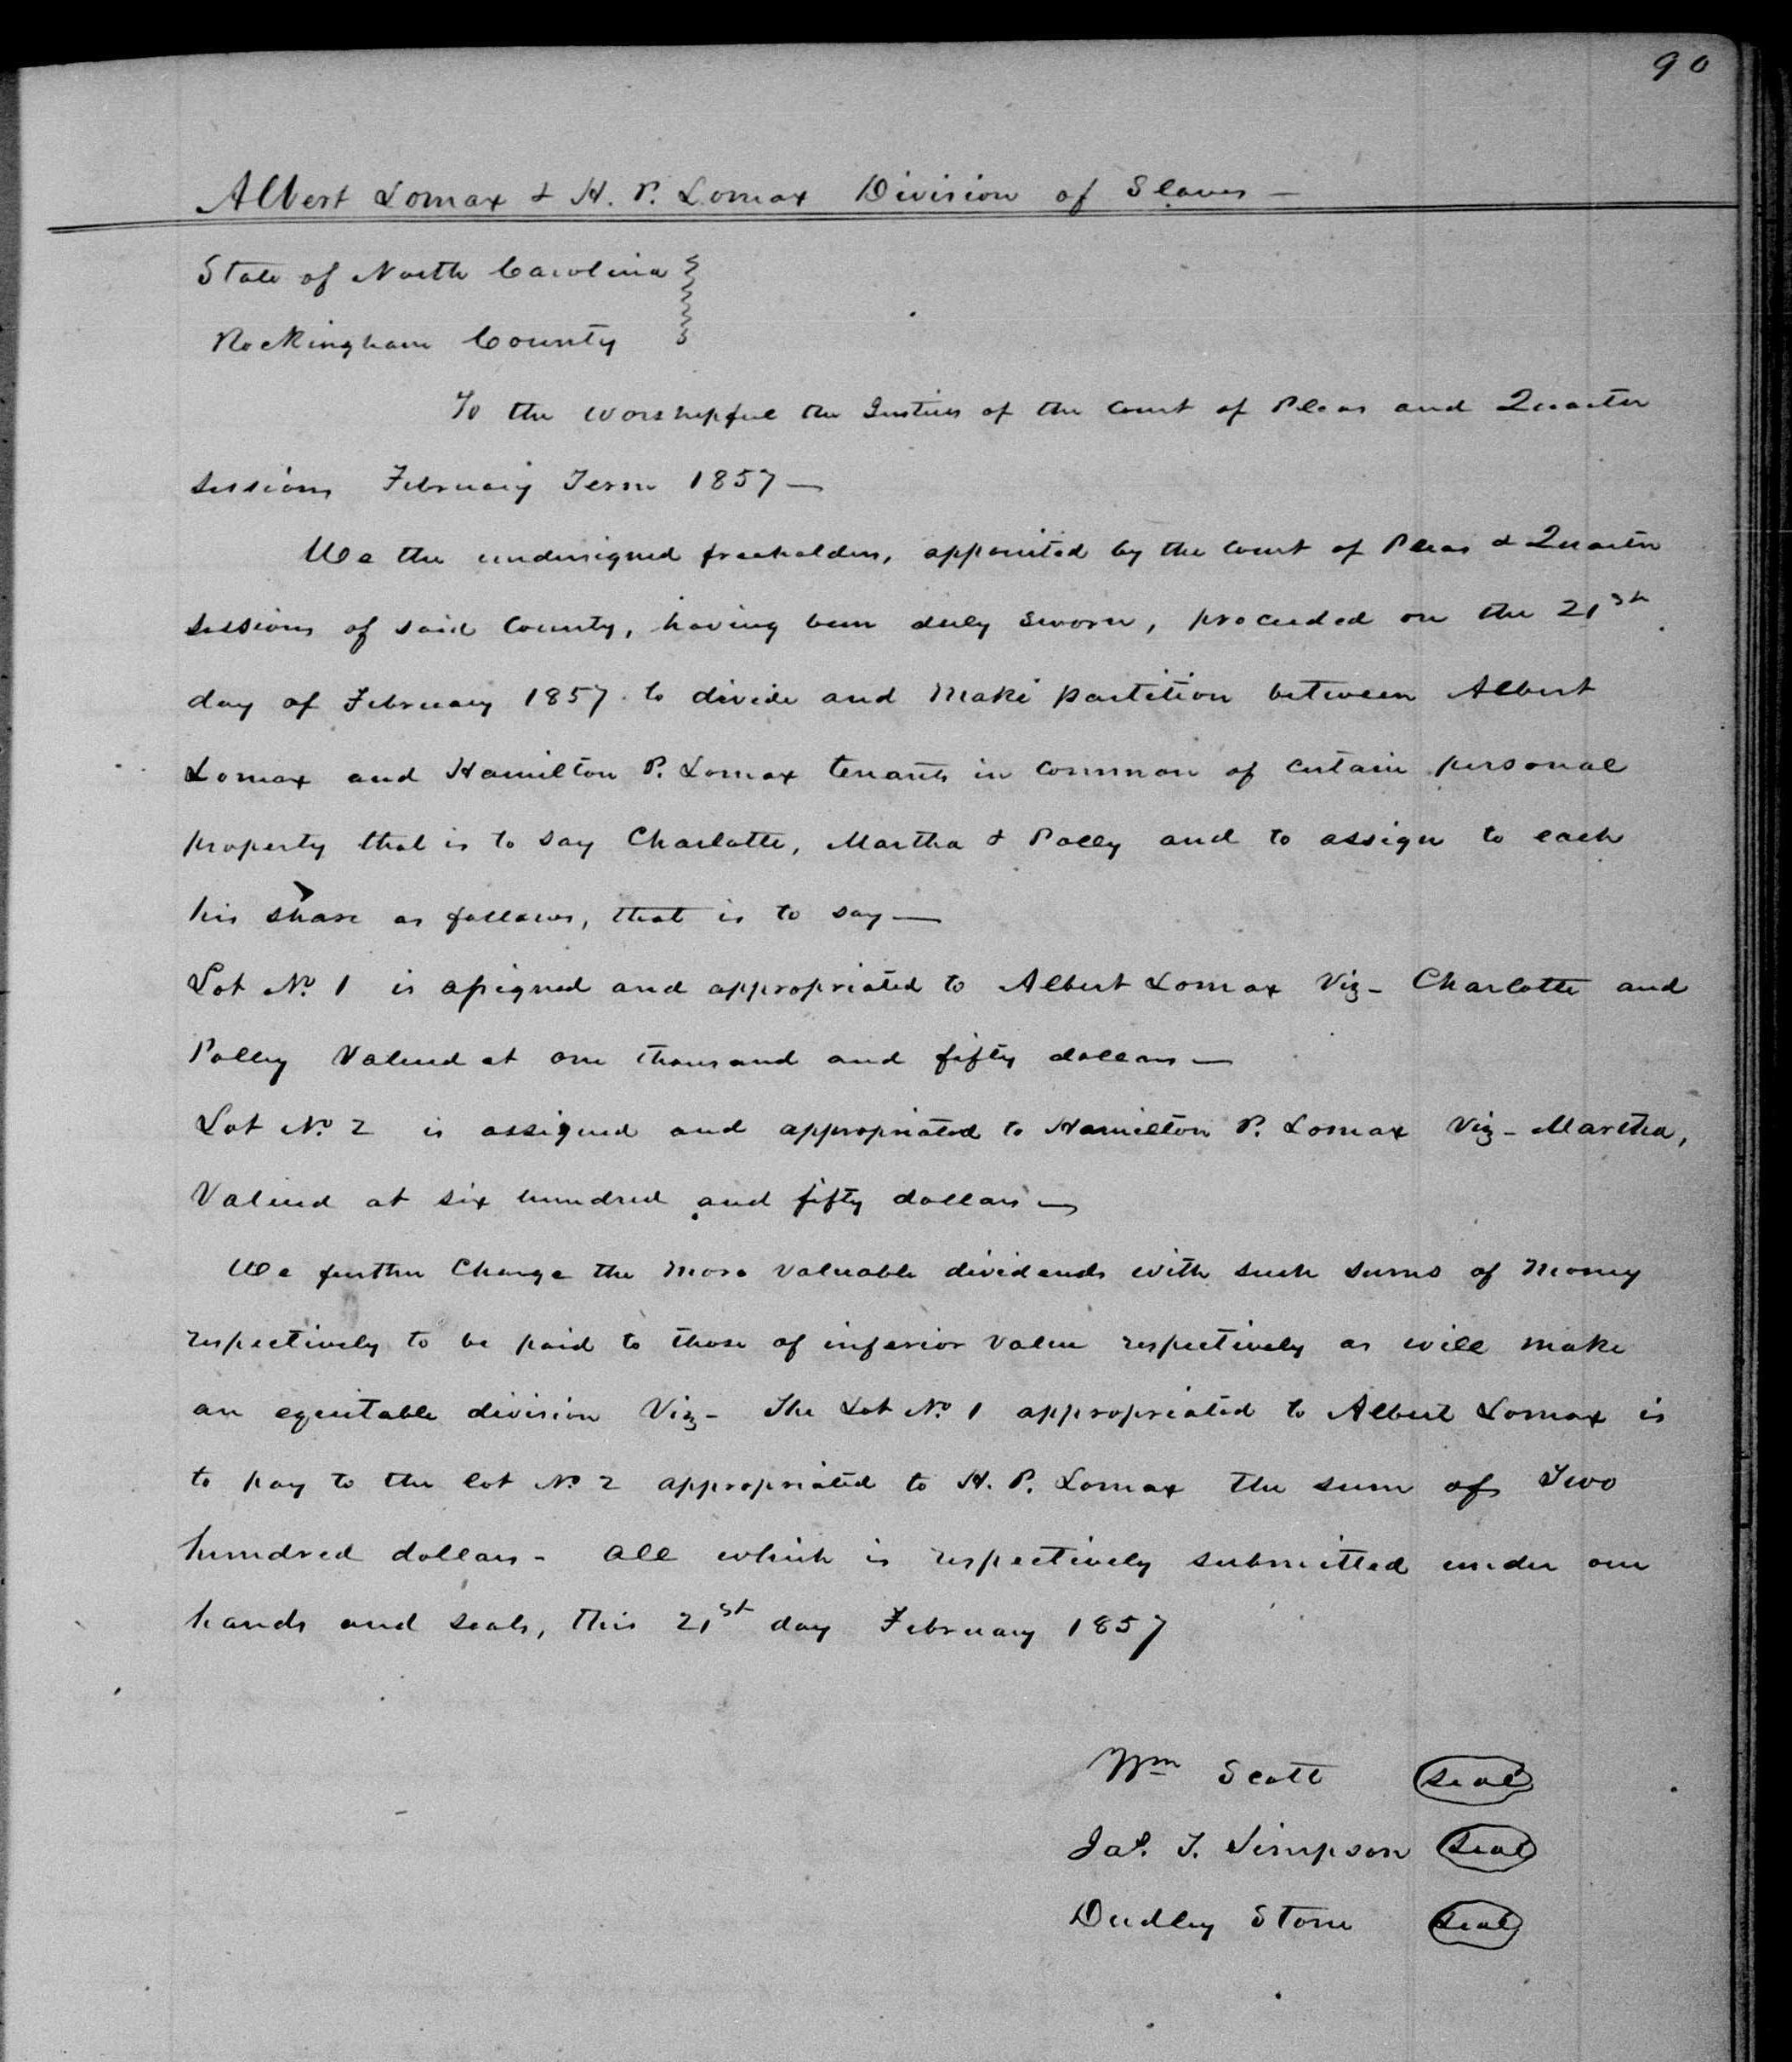 90
Albert Lomax & H. P. Lomax Division of Slaves —
State of North Carolina
Rockingham County
To the worshipful the Justices of the Court of Pleas and Quarter
sessions February Term 1857 —
We the undersigned freeholders, appointed by the Court of Pleas & Quarter
sessions of said County, having been duly sworn, proceeded on the 21st
day of February 1857. to divide and make partition between Albert
Lomax and Hamilton P. Lomax tenants in common of certain personal
property that is to say Charlotte, Martha & Polly and to assign to each
his share as follows, that is to say —
Lot No. 1 is assigned and appropriated to Albert Lomax Viz - Charlotte and
Polley Valued at one thousand and fifty dollars —
Lot No. 2 is assigned and appropriated to Hamilton P. Lomax Viz - Martha,
Valued at six hundred and fifty dollars —
We further Charge the more valuable dividends with such sums of money
respectively to be paid to those of inferior value respectively as will make
an equitable division Viz - The Lot No. 1 appropriated to Albert Lomax is
to pay to the lot No. 2 appropriated to H. P. Lomax the sum of Two
hundred dollars - all which is respectively submitted under our
hands and seals, this 21st day February 1857
Wm Scott seal
Jas. T. Simpson seal
Dudley Stone seal